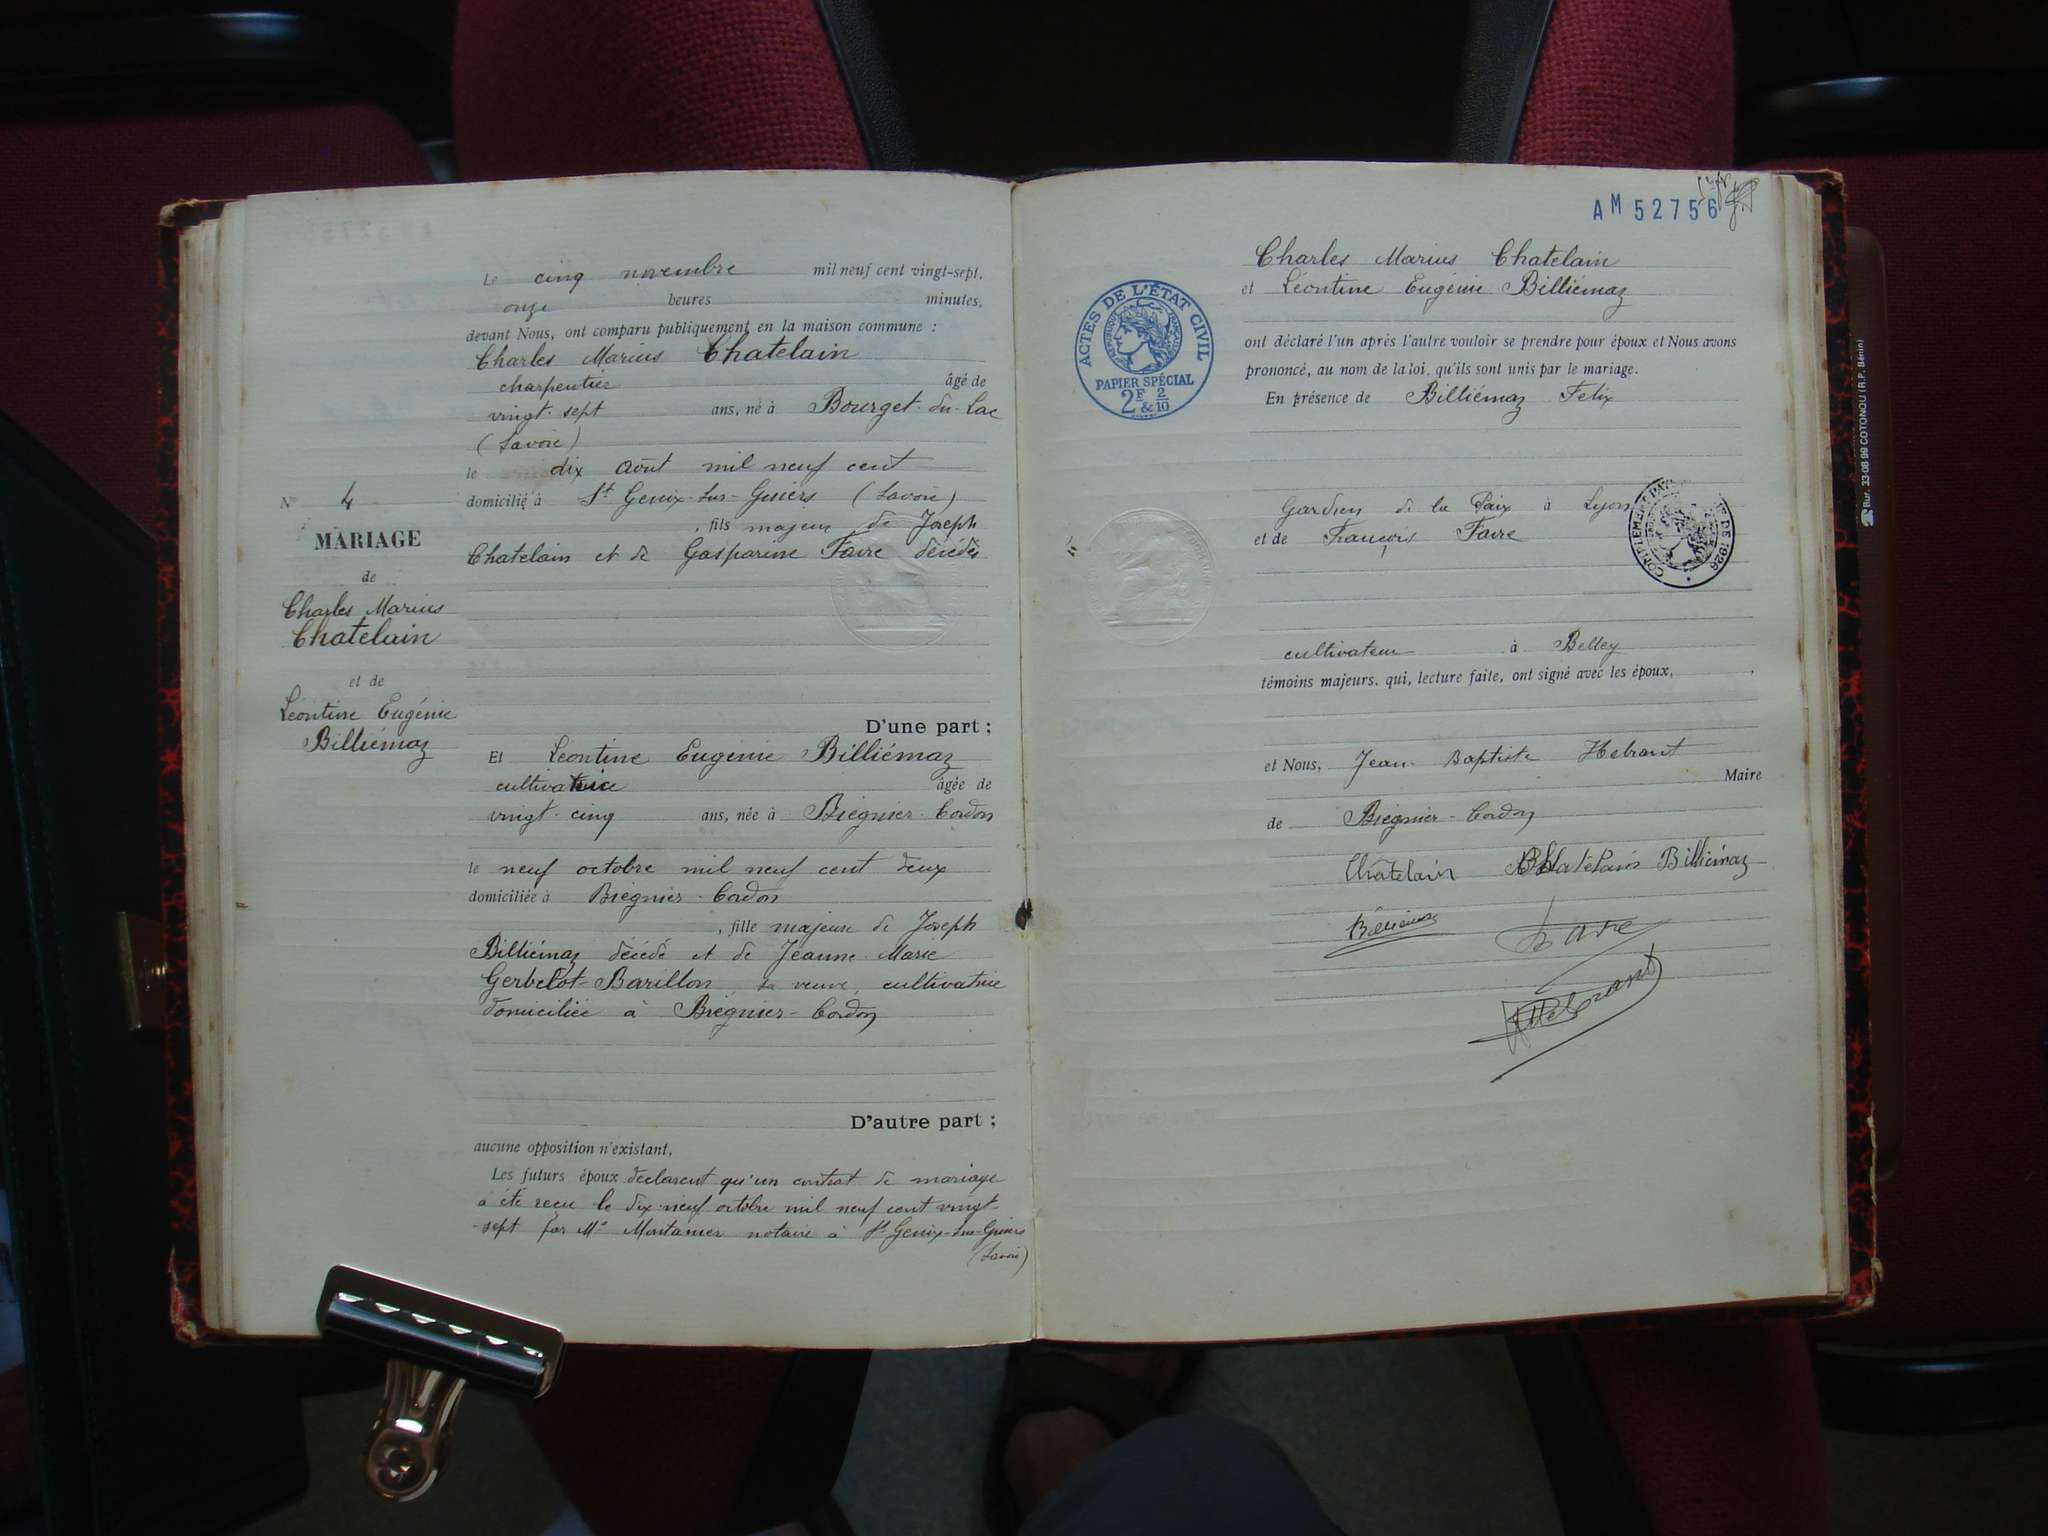 Le cinq novembre mil neuf cent vingt-sept,
onze heures minutes,
devant Nous, ont comparu publiquement en la maison commune :
Charles Marius Chatelain
charpentier âgé de
vingt-sept ans, né à Bourget-du-Lac
(Savoie)
le dix Août mil neuf cent
domicilié à St Genix-sur-Guiers (Savoie)
, fils majeur de Joseph
Chatelain et de Gasparine Favre décédés
N° 4
MARIAGE
de
Charles Marius
Chatelain
et de
Léontine Eugénie
Billiémaz
D'une part ;
Et Léontine Eugénie Billiémaz
cultivatrice âgée de
vingt-cinq ans, née à Brégnier-Cordon
le neuf octobre mil neuf cent deux
domiciliée à Brégnier-Cordon
, fille majeure de Joseph
Billiémaz décédé et de Jeanne-Marie
Gerbelot-Barillon, sa veuve, cultivatrice
domiciliée à Brégnier-Cordon
D'autre part ;
aucune opposition n'existant,
Les futurs époux déclarent qu'un contrat de mariage
a été reçu le dix-neuf octobre mil neuf cent vingt-
-sept par Me notaire à St Genix-sur-Guiers
(Savoie)
AM 52756
ACTES DE L'ÉTAT CIVIL
RÉPUBLIQUE FRANÇAISE
PAPIER SPÉCIAL
2F & 2/10
Charles Marius Chatelain
et Léontine Eugénie Billiémaz
ont déclaré l'un après l'autre vouloir se prendre pour époux et Nous avons
prononcé, au nom de la loi, qu'ils sont unis par le mariage.
En présence de Billiémaz Felix
Gardien de la Paix à Lyon
et de François Favre
DE 1926
cultivateur à Belley
témoins majeurs, qui, lecture faite, ont signé avec les époux,
et Nous, Jean-Baptiste Hebrant
Maire
de Brégnier-Cordon
Châtelain Billiémaz
Billiémaz Favre
Hebrant
Bur. 33-08 99 COTONOU (R.P. Bénin)